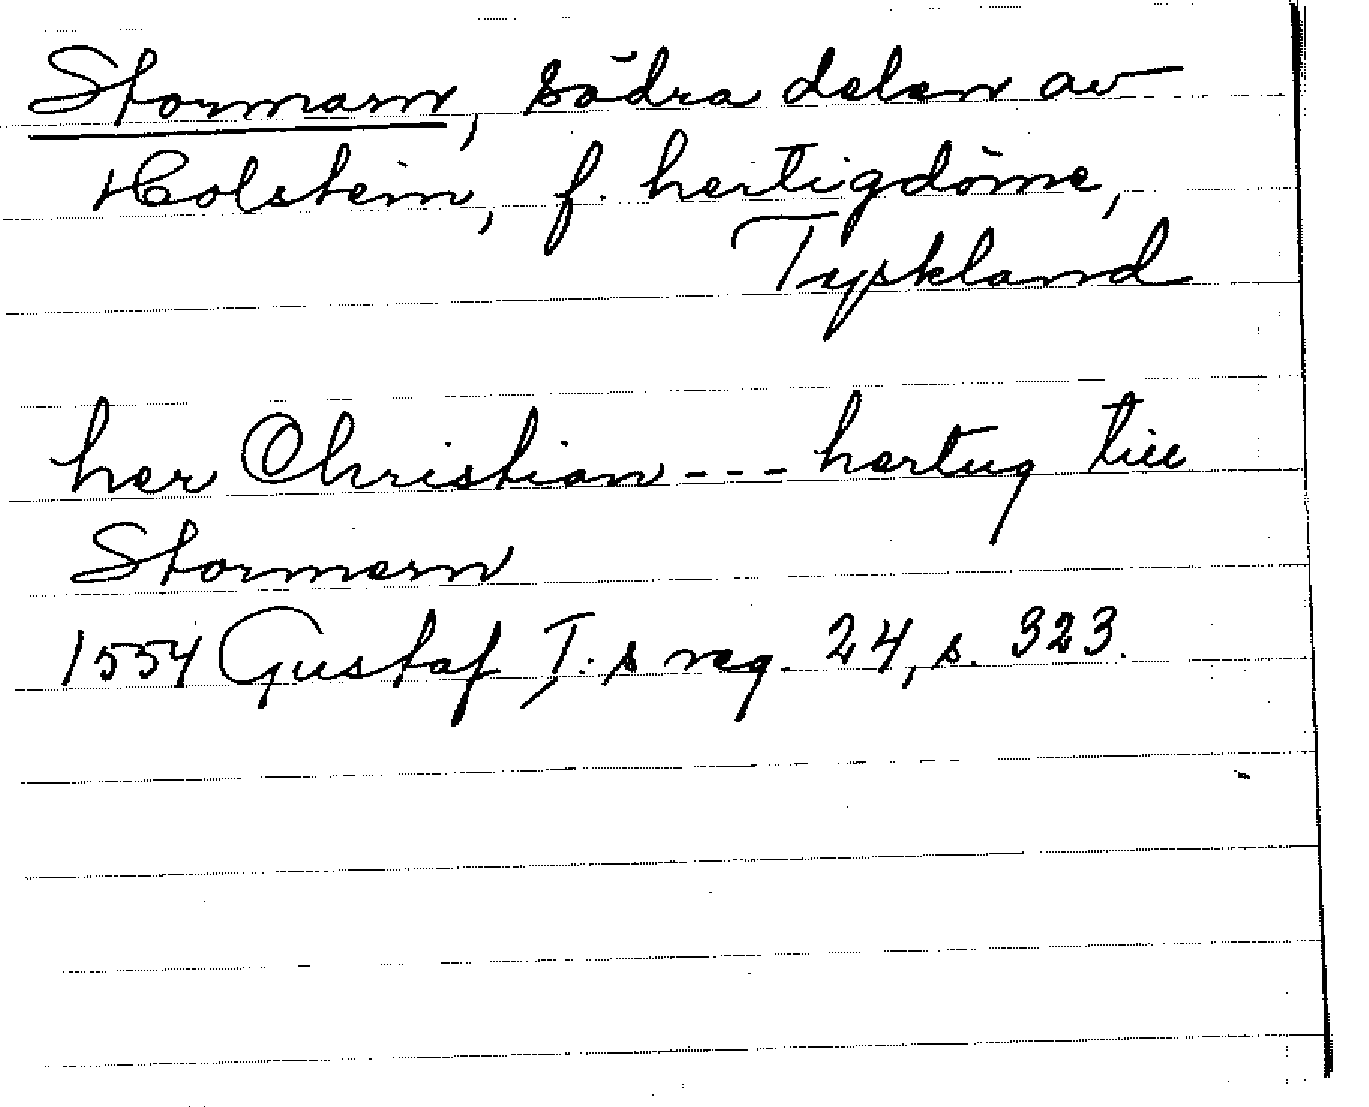 Stormarn, södra delen av
Holstein, f. hertigdöme,
Tyskland
her Christian --- hertug till
Stormern
1554 Gustaf I:s reg. 24, s. 323.